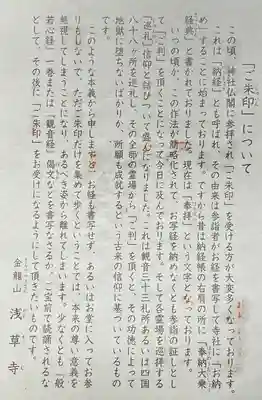 「ご朱印」について
この頃、神社仏閣に参拝され「ご朱印」を受ける方が大変多くなっております。
これは「納経」とも呼ばれ、その由来は参詣者がお経を書写して寺社に「お納
め」することに始まっております。ですから昔は納経帳の右肩の所に「奉納大乗
経典」と書かれておりました。現在は「奉拝」という文字となっております。
いつの頃か、この作法が簡略化されて、お写経を納めなくとも参詣の証しとし
て「ご判」を頂くことになって今日に及んでおります。そして各霊場を巡拝する
「巡礼」信仰と結びついて盛んになりました。これは観音三十三札所あるいは四国
八十八ヶ所を巡礼し、その全部の霊場から「ご判」を頂くと、その功徳によって
地獄に堕ちないばかりか、所願も成就するという古来の信仰に基づいているもの
です。
このような本義から申しますと、お経も書写せず、あるいはお堂に入ってお参
りもしないで、ただご朱印だけを集めて歩くということでは、本来の尊い意義を
無視してしまうことになり、あるべき姿から離れてしまいます。少なくとも「般
若心経」一巻または「観音経」偈文などを書写なさるか、ご宝前で読誦されるな
どして、その後に「ご朱印」をお受けになるようにして頂きたいものです。
金龍山 浅草寺